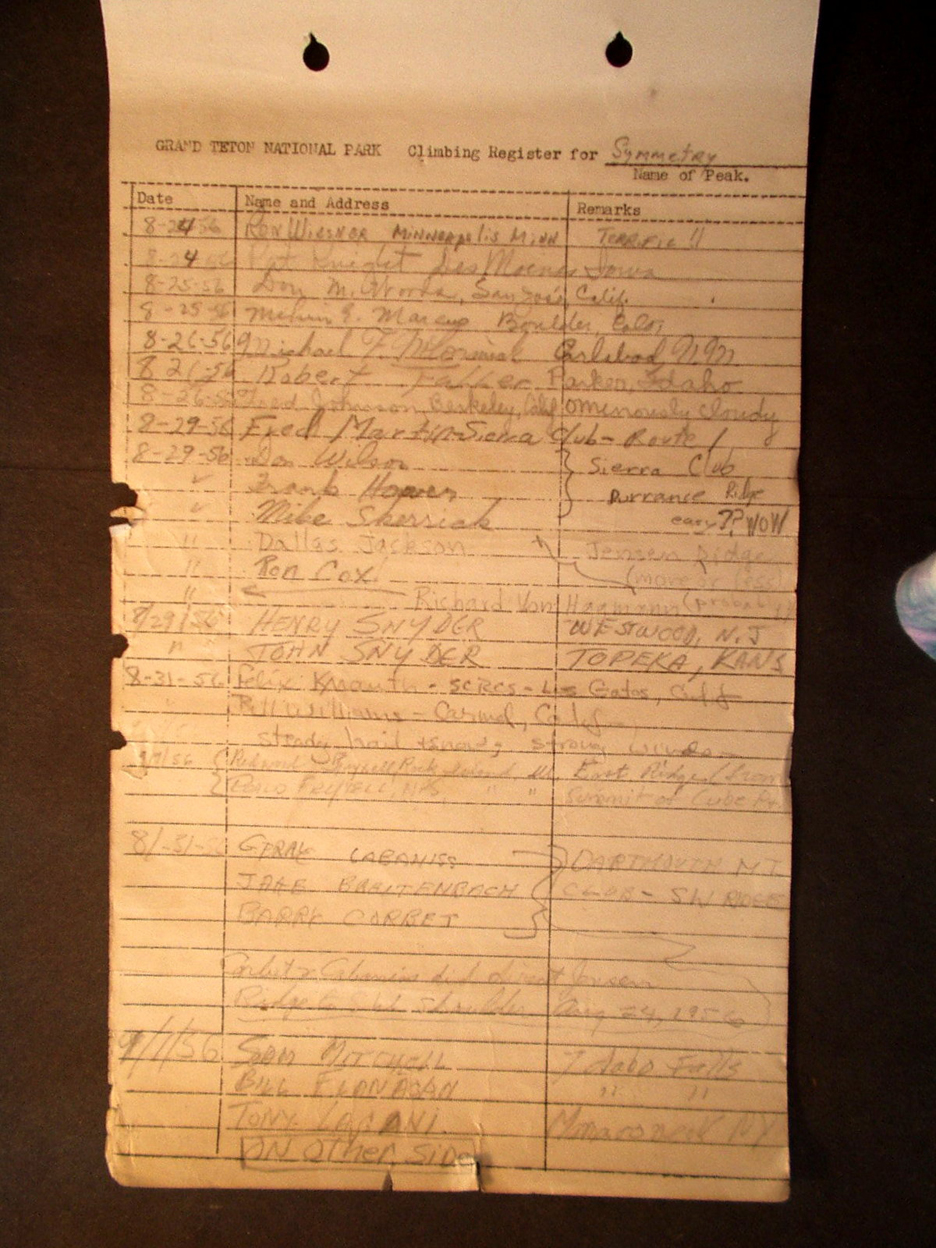 GRAND TETON NATIONAL PARK Climbing Register for Symmetry
Name of Peak.
Date Name and Address Remarks
8-24-56 Ron Wiesner Minneapolis Minn Terrific !!
8-24-56 Pat Knight Des Moines Iowa
8-25-56 Don M. Woods, San José, Calif.
8-25-56 Melvin E. Marcus Boulder, Colo,
8-26-56 Michael F. Carlsbad N.M.
8-26-56 Robert Parker, Idaho
8-26-56 Fred Johnson, Berkeley, Calif ominously cloudy
8-29-56 Fred Martin-Sierra Club - Route 1
8-29-56 Don Wilson Sierra Club
" Frank Hoover Durrance Ridge
" Mike Sherrick easy?? WOW
" Dallas Jackson Jensen Ridge
" Ron Cox (more or less)
" Richard Von Hagmann (probably)
8/29/56 HENRY SNYDER WESTWOOD, N.J
" JOHN SNYDER TOPEKA, KANS
8-31-56 Felix Knauth - SCRCS - Los Gatos, Calif
Bill Williams - Carmel, Calif
steady hail + snow, strong winds
/56 Rock Island, Ill East Ridge (from
NPS, " " Summit of Cube Pt.
8/-31-56 GERRY CABANISS DARTMOUTH MT.
JAKE BREITENBACH CLUB - SW RIDGE
BARRY CORBET
Corbet & Cabaniss did direct Jensen
Ridge to Shoulder Aug 24, 1956
9/1/56 SAM MITCHELL Idaho Falls
BILL FLANAGAN " "
TONY LAGANI Mamaroneck NY
ON Other Side